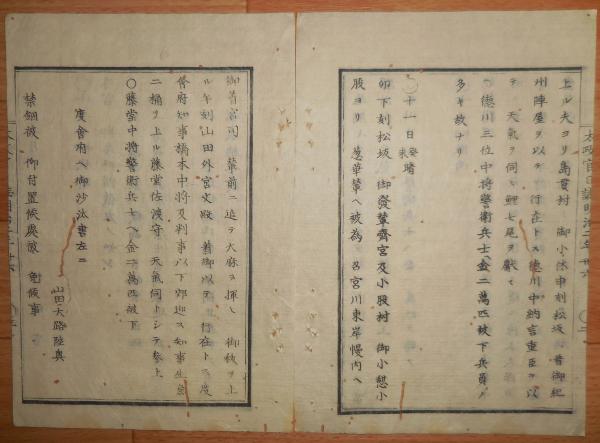 太政官日誌明治二年 卅六
上ル夫ヨリ髙貫村 御小休申刻松坂 着御紀
州陣屋ヲ以テ 行在トス德川中納言重臣ヲ以
テ 天氣ヲ伺ヒ鯉七尾ヲ獻ス
〇德川三位中将警衛兵士ヘ金二萬匹被下兵員ノ
多キ故ナリ
〇十一日癸未晴
卯下刻松坂 御發輦齋宮及小股村 御小憩小
股ヨリ 葱華輦ヘ被為 召宮川東岸幔内ヘ
御着宮司 輦前ニ進テ大麻ヲ揮ヒ 御秡ヲ上
ル午刻山田外宮文殿 着御以テ 行在トス度
會府知事橋本中将及判事以下郊迎ス知事生魚
二桶ヲ上ル藤堂佐渡守 天氣伺トシテ参上
〇藤堂中将警衛兵士ヘ金二萬匹被下
度會府ヘ御沙汰書左ニ
山田大路陸奥
禁錮被 仰付置候處 免候事